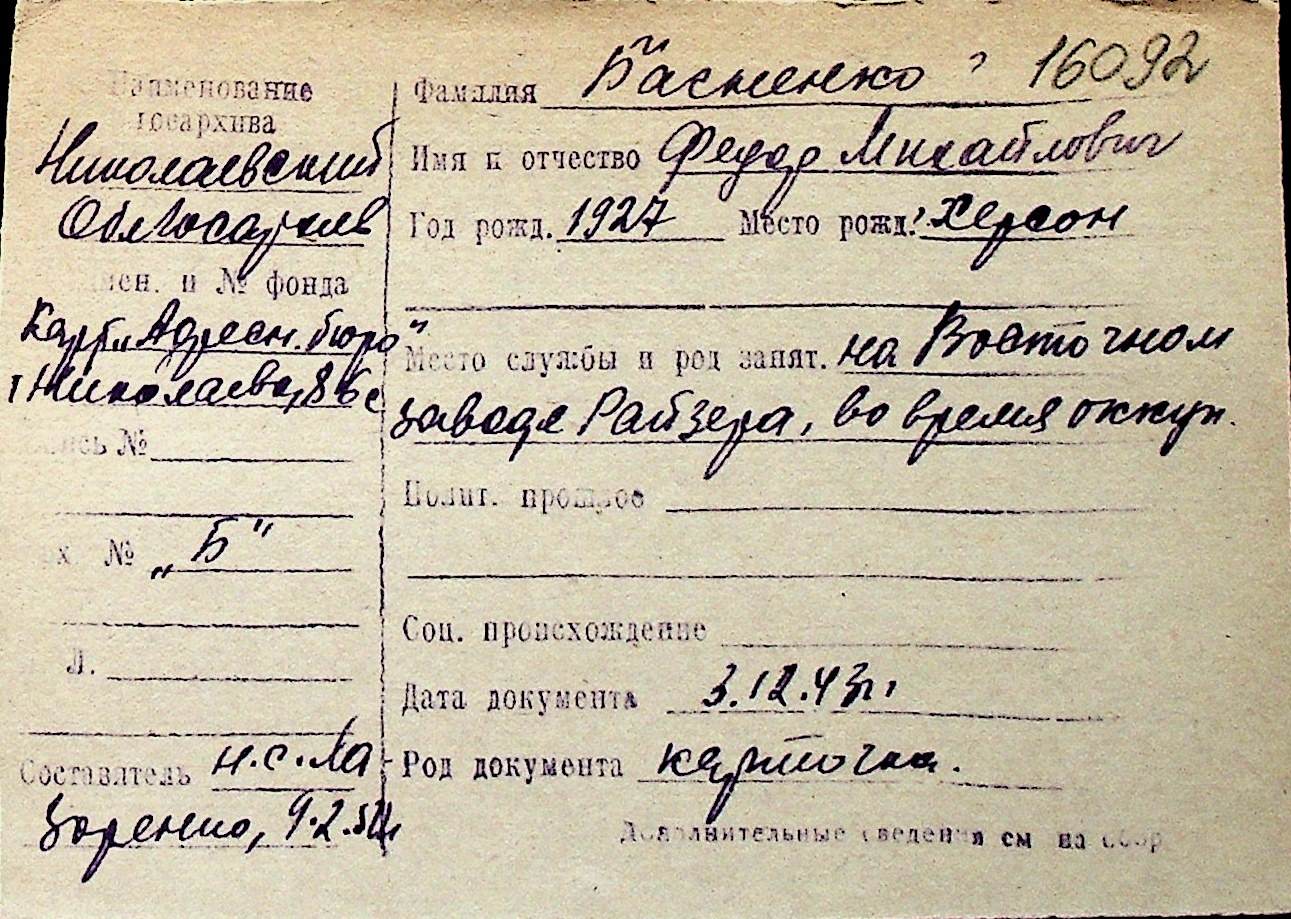 Наименование
Госархива
Николаевский
Облгосархив
мен. и № фонда
Карт. „Адресн. бюро"
г Николаева, 86с
пись №
рх. № „Б"
Л.
Составитель н.с. Ла
заренко, 9.2.52г
Фамилия Басиенко ? 16092
Имя и отчество Федор Михайлович
Год рожд. 1927 Место рожд. г Херсон
Место службы и род занят. на Восточном
заводе Райзера, во время оккуп.
Полит. прошлое
Соц. происхождение
Дата документа 3.12.43г.
Род документа карточка.
Дополнительные сведения см на обор